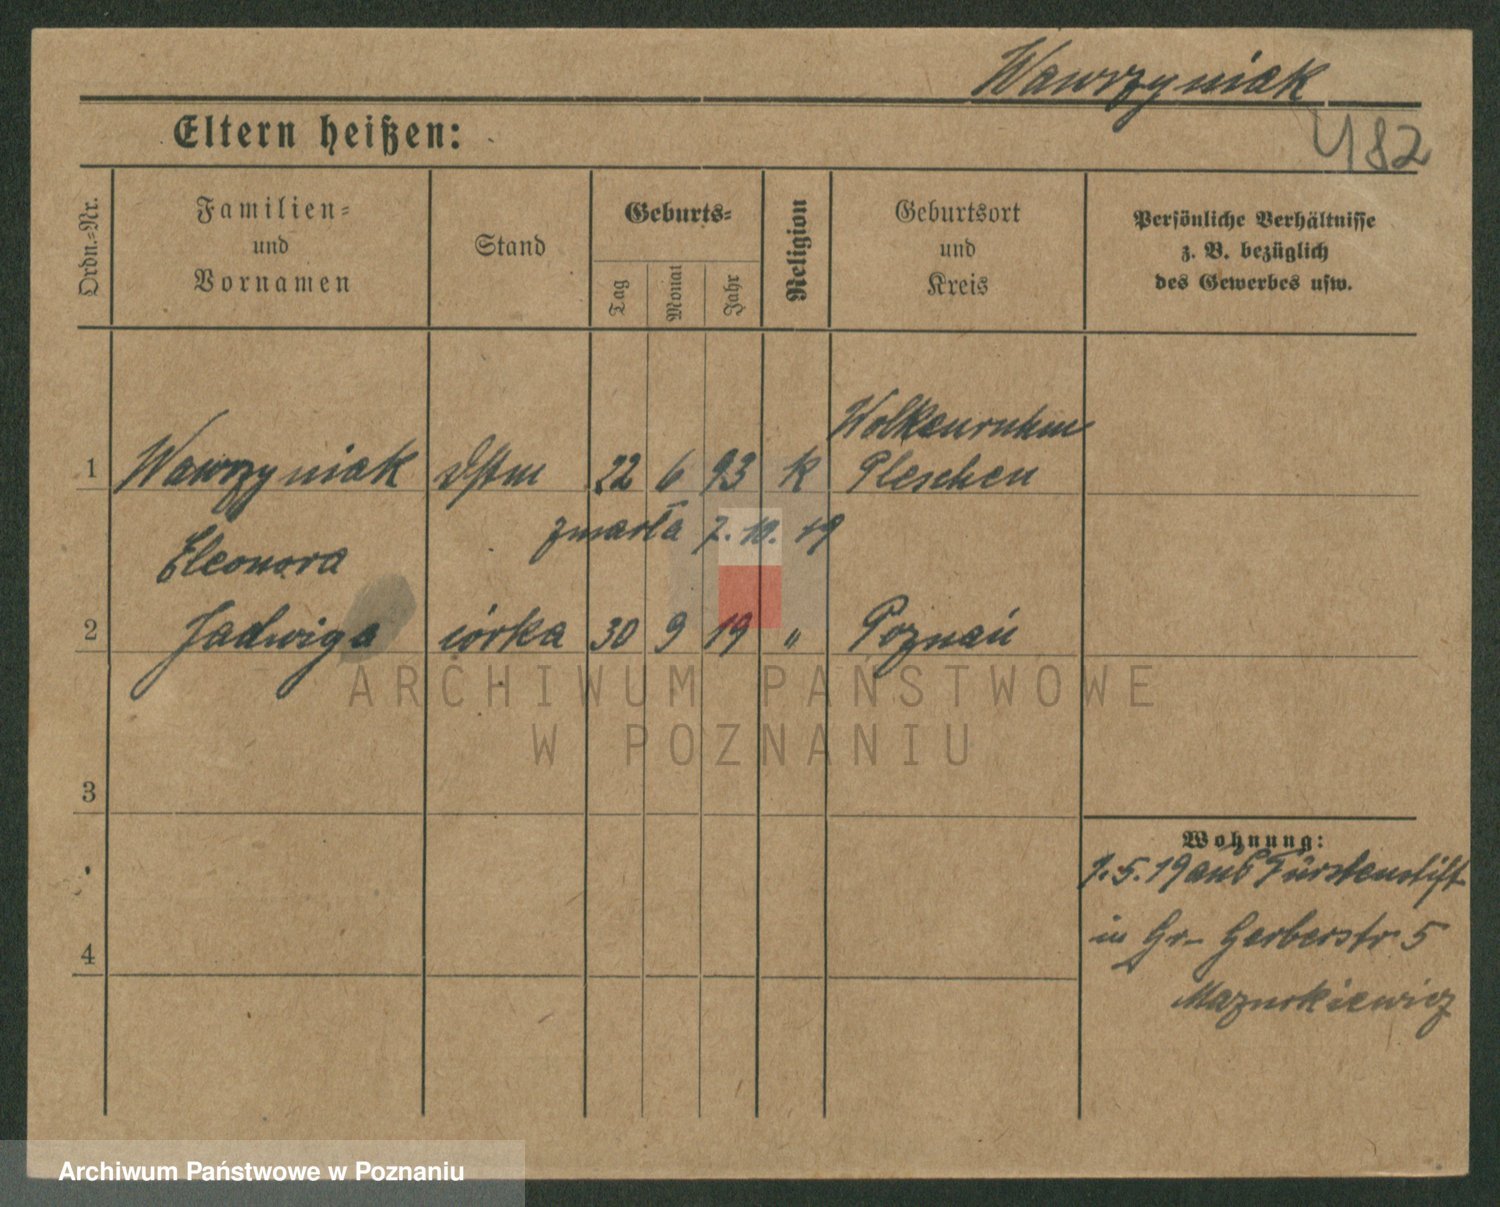 Wawrzyniak
Eltern heißen:
482
Ordn.-Nr.
Familien-
und
Vornamen
Stand
Geburts-
Tag
Monat
Jahr
Religion
Geburtsort
und
Kreis
Persönliche Verhältnisse
z. B. bezüglich
des Gewerbes usw.
Wolkenruhm
1 Wawrzyniak Dstm 22 6 93 k Pleschen
zmarła 7. 10. 19
Eleonora
2 Jadwiga córka 30 9 19 " Poznań
ARCHIWUM PAŃSTWOWE
W POZNANIU
3
Wohnung:
1. 5. 19 aus Fürstenstift
in Gr- Gerberstr 5
4
Mazurkiewicz
Archiwum Państwowe w Poznaniu